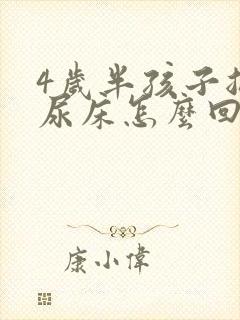 4歲半孩子
尿床怎麼回
康小偉